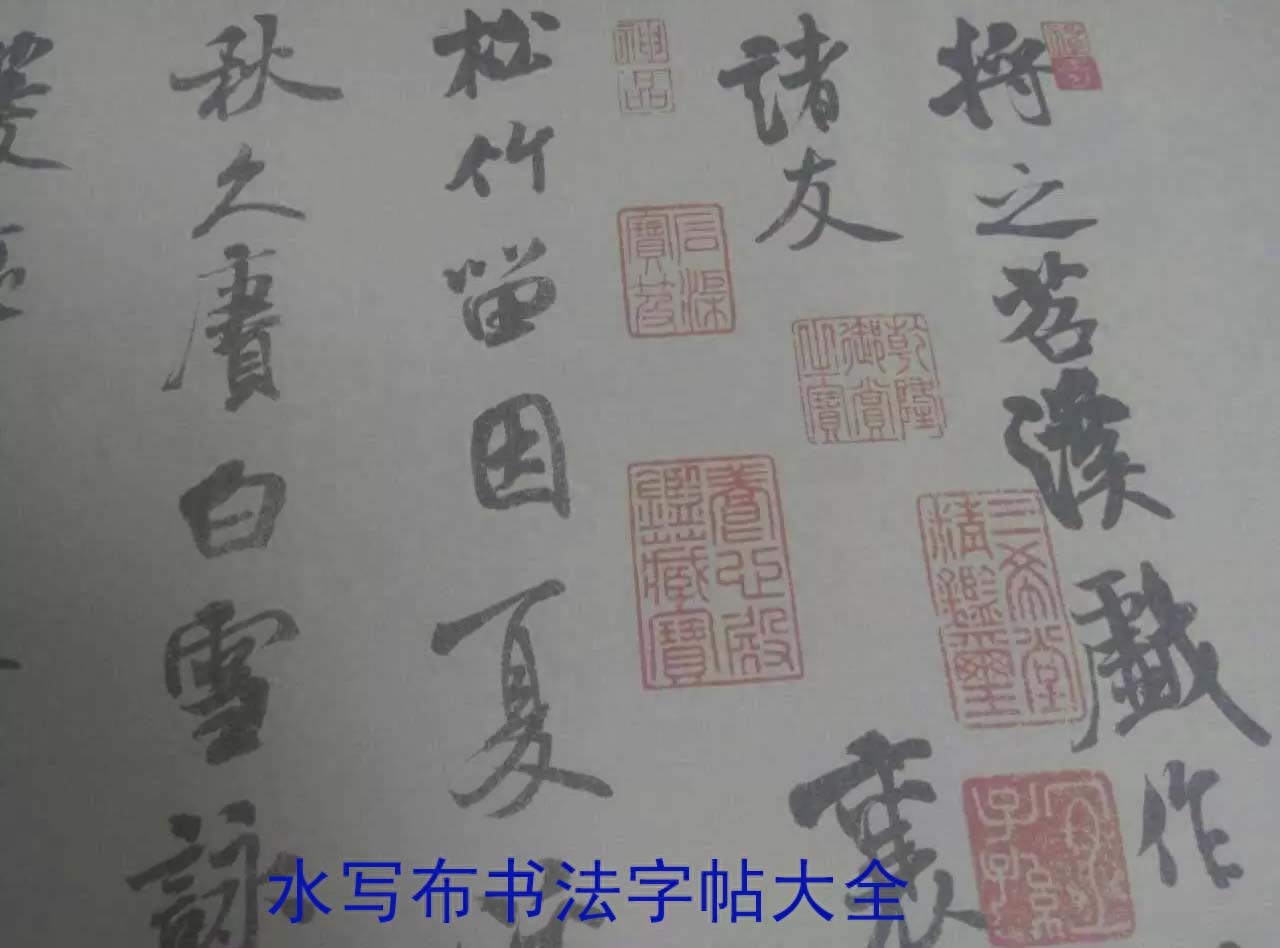 將之苕溪戲作
諸友
襄
松竹留因夏
秋久賡白雪詠
神品
石渠寶笈
乾隆御賞之寶
養心殿鑑藏寶
三希堂精鑑璽
宜子孫
水写布书法字帖大全